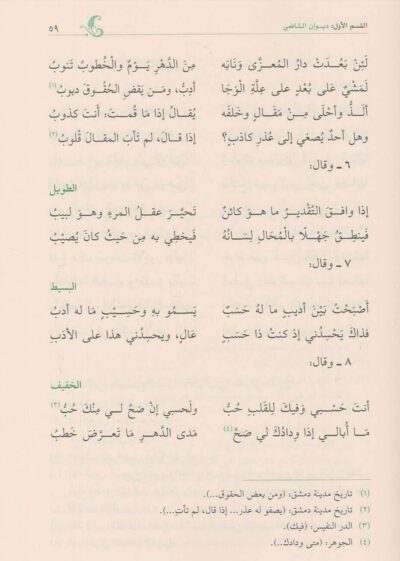 القسم الأول: ديوان الشافعي ٥٩
لَئِنْ بَعُدَتْ دارُ المُعزَّى وَنَابَه مِنَ الدَّهْرِ يَـوْمٌ وَالْخُطوبُ تَنوبُ
لَمَشْيٌ عَلى بُعْدٍ على عِلَّةِ الْوَجَا أدِبُّ، ومَن يَقضِ الحُقُوقَ دبوبُ (١)
ألَـذُّ وأحْلَى مِـنْ مَقَـالٍ وخَلفَه يُقالُ إذا مَا قُمـتَ: أَنـتَ كذوبُ
وهل أحدٌ يُصغي إلى عُذرِ كاذبٍ؟ إذا قالَ، لم تَأبَ المقالَ قُلوبُ (٢)
٦ ـ وقال:
الطويل
إذا وافـقَ التَّقْديـرُ ما هـو كائنٌ تَحيَّـرَ عقـلُ المرءِ وهـو لبيبُ
فَينطِـقُ جَهْـلًا بالْمُحَالِ لِسَانُهُ فَيخطِي به مِن حَيثُ كانَ يُصَيْبُ
٧ ـ وقال:
البسيط
أَصْبَحْتُ بَيْنَ أديبٍ ما لهُ حَسَبٌ يَسـمُو بهِ وحَسِيْبٍ مَا له أدبُ
فذاكَ يَحْسِدُني إذ كنتُ ذا حَسَبٍ عَالٍ، ويحسِدُني هذا على الأدَبِ
٨ ـ وقال:
الخفيف
أنتَ حَسْـبي وَفيكَ لِلقَلبِ حُبُّ ولَحسبي إنْ صَحَّ لـي مِنْكَ حُبُّ (٣)
مَـا أُبـالـي إذا ودادُكَ لي صَحَّ (٤) مَدَى الدَّهـرِ مَا تَعرَّضَ خَطبُ
(١) تاريخ مدينة دمشق: (ومن بعض الحقوق...).
(٢) تاريخ مدينة دمشق: (يصفو له عذر... إذا قال، لم تأتِ...).
(٣) الدر النفيس: (فيك).
(٤) الجوهر: (متى ودادك..).